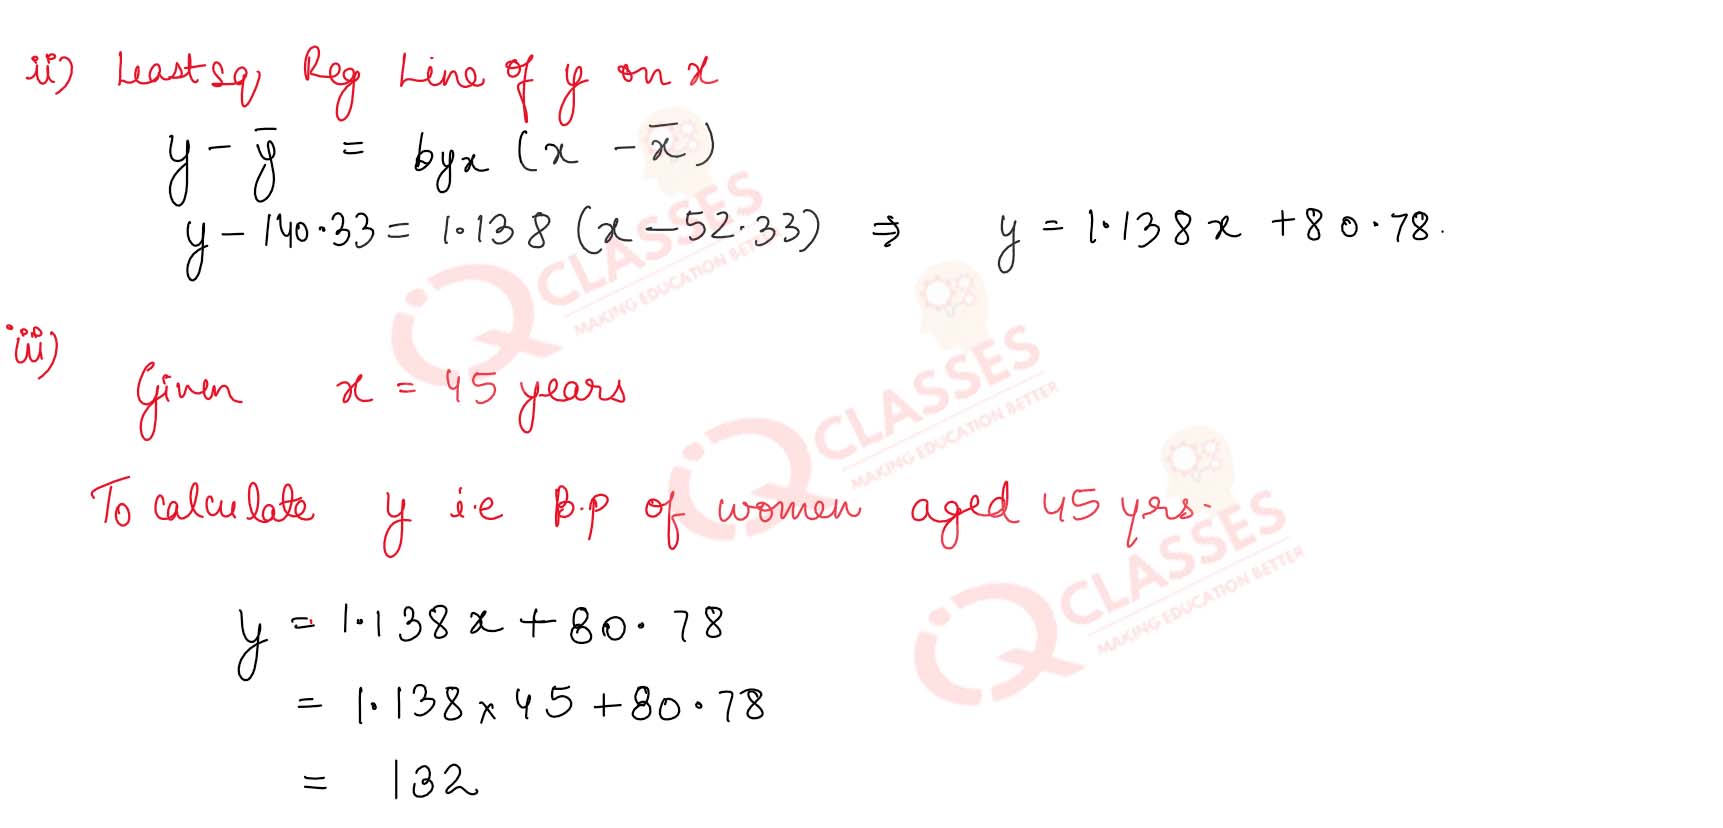 ii) Leastsq, Reg Line of y on x
y - ȳ = byx (x - x̄)
y - 140.33 = 1.138 (x - 52.33) ⇒ y = 1.138 x + 80.78.
iii)
Given x = 45 years
To calculate y i.e B.p of women aged 45 yrs.
y = 1.138 x + 80.78
= 1.138 x 45 + 80.78
= 132
iQ CLASSES
MAKING EDUCATION BETTER
iQ CLASSES
MAKING EDUCATION BETTER
iQ CLASSES
MAKING EDUCATION BETTER